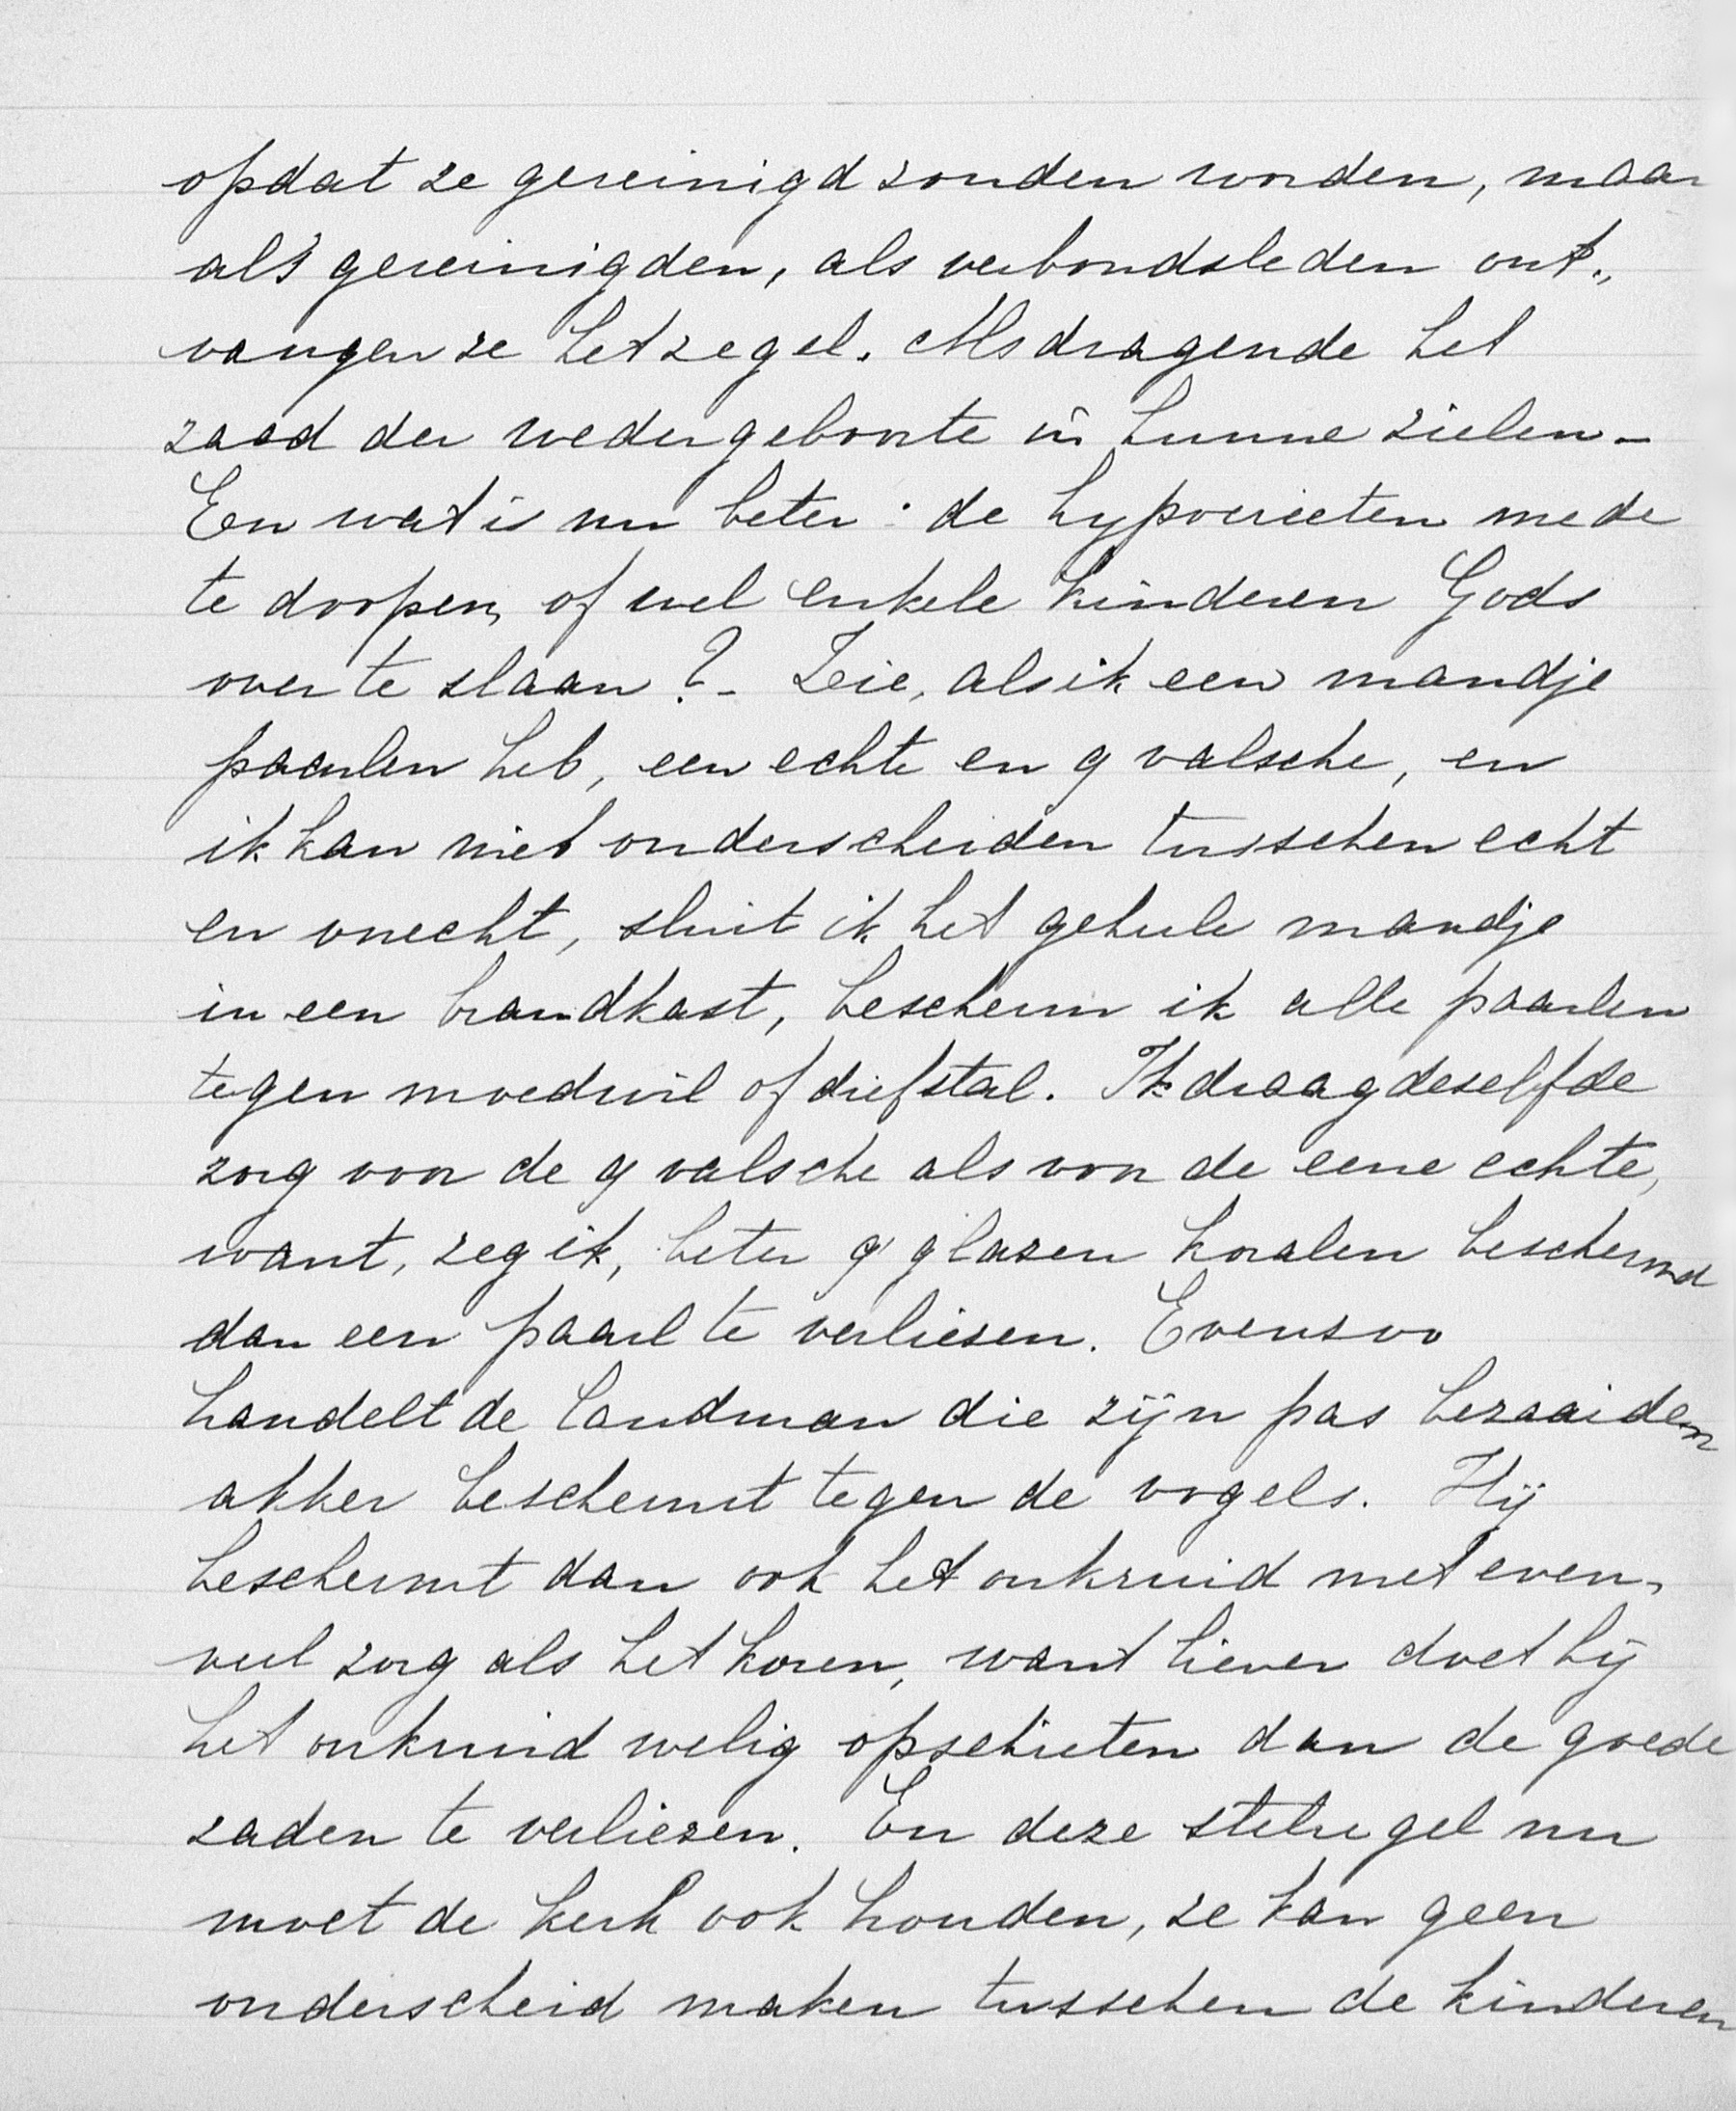 opdat ze gereinigd zouden worden, maar
als gereinigden, als verbondsleden ont„
vangen ze het zegel. Als dragende het
zaad der wedergeboorte in hunne zielen –
En wat is nu beter: de hypocrieten mede
te doopen, of wel enkele kinderen Gods
over te slaan? – Zie, als ik een mandje
paarlen heb, een echte en 9 valsche, en
ik kan niet onderscheiden tusschen echt
en onecht, sluit ik het geheele mandje
in een brandkast, bescherm ik alle paarlen
tegen moedwil of diefstal. Ik draag deselfde
zorg voor de 9 valsche als voor de eene echte,
want, zeg ik, beter 9 glazen koralen beschermd
dan een paarl te verliesen. Evenzoo
handelt de landman die zijn pas bezaaiden
akker beschermt tegen de vogels. Hij
beschermt dan ook het onkruid met even„
veel zorg als het koren, want liever doet hij
het onkruid welig opschieten dan de goede
zaden te verliezen. En deze stelregel nu
moet de kerk ook houden, ze kan geen
onderscheid maken tusschen de kinderen